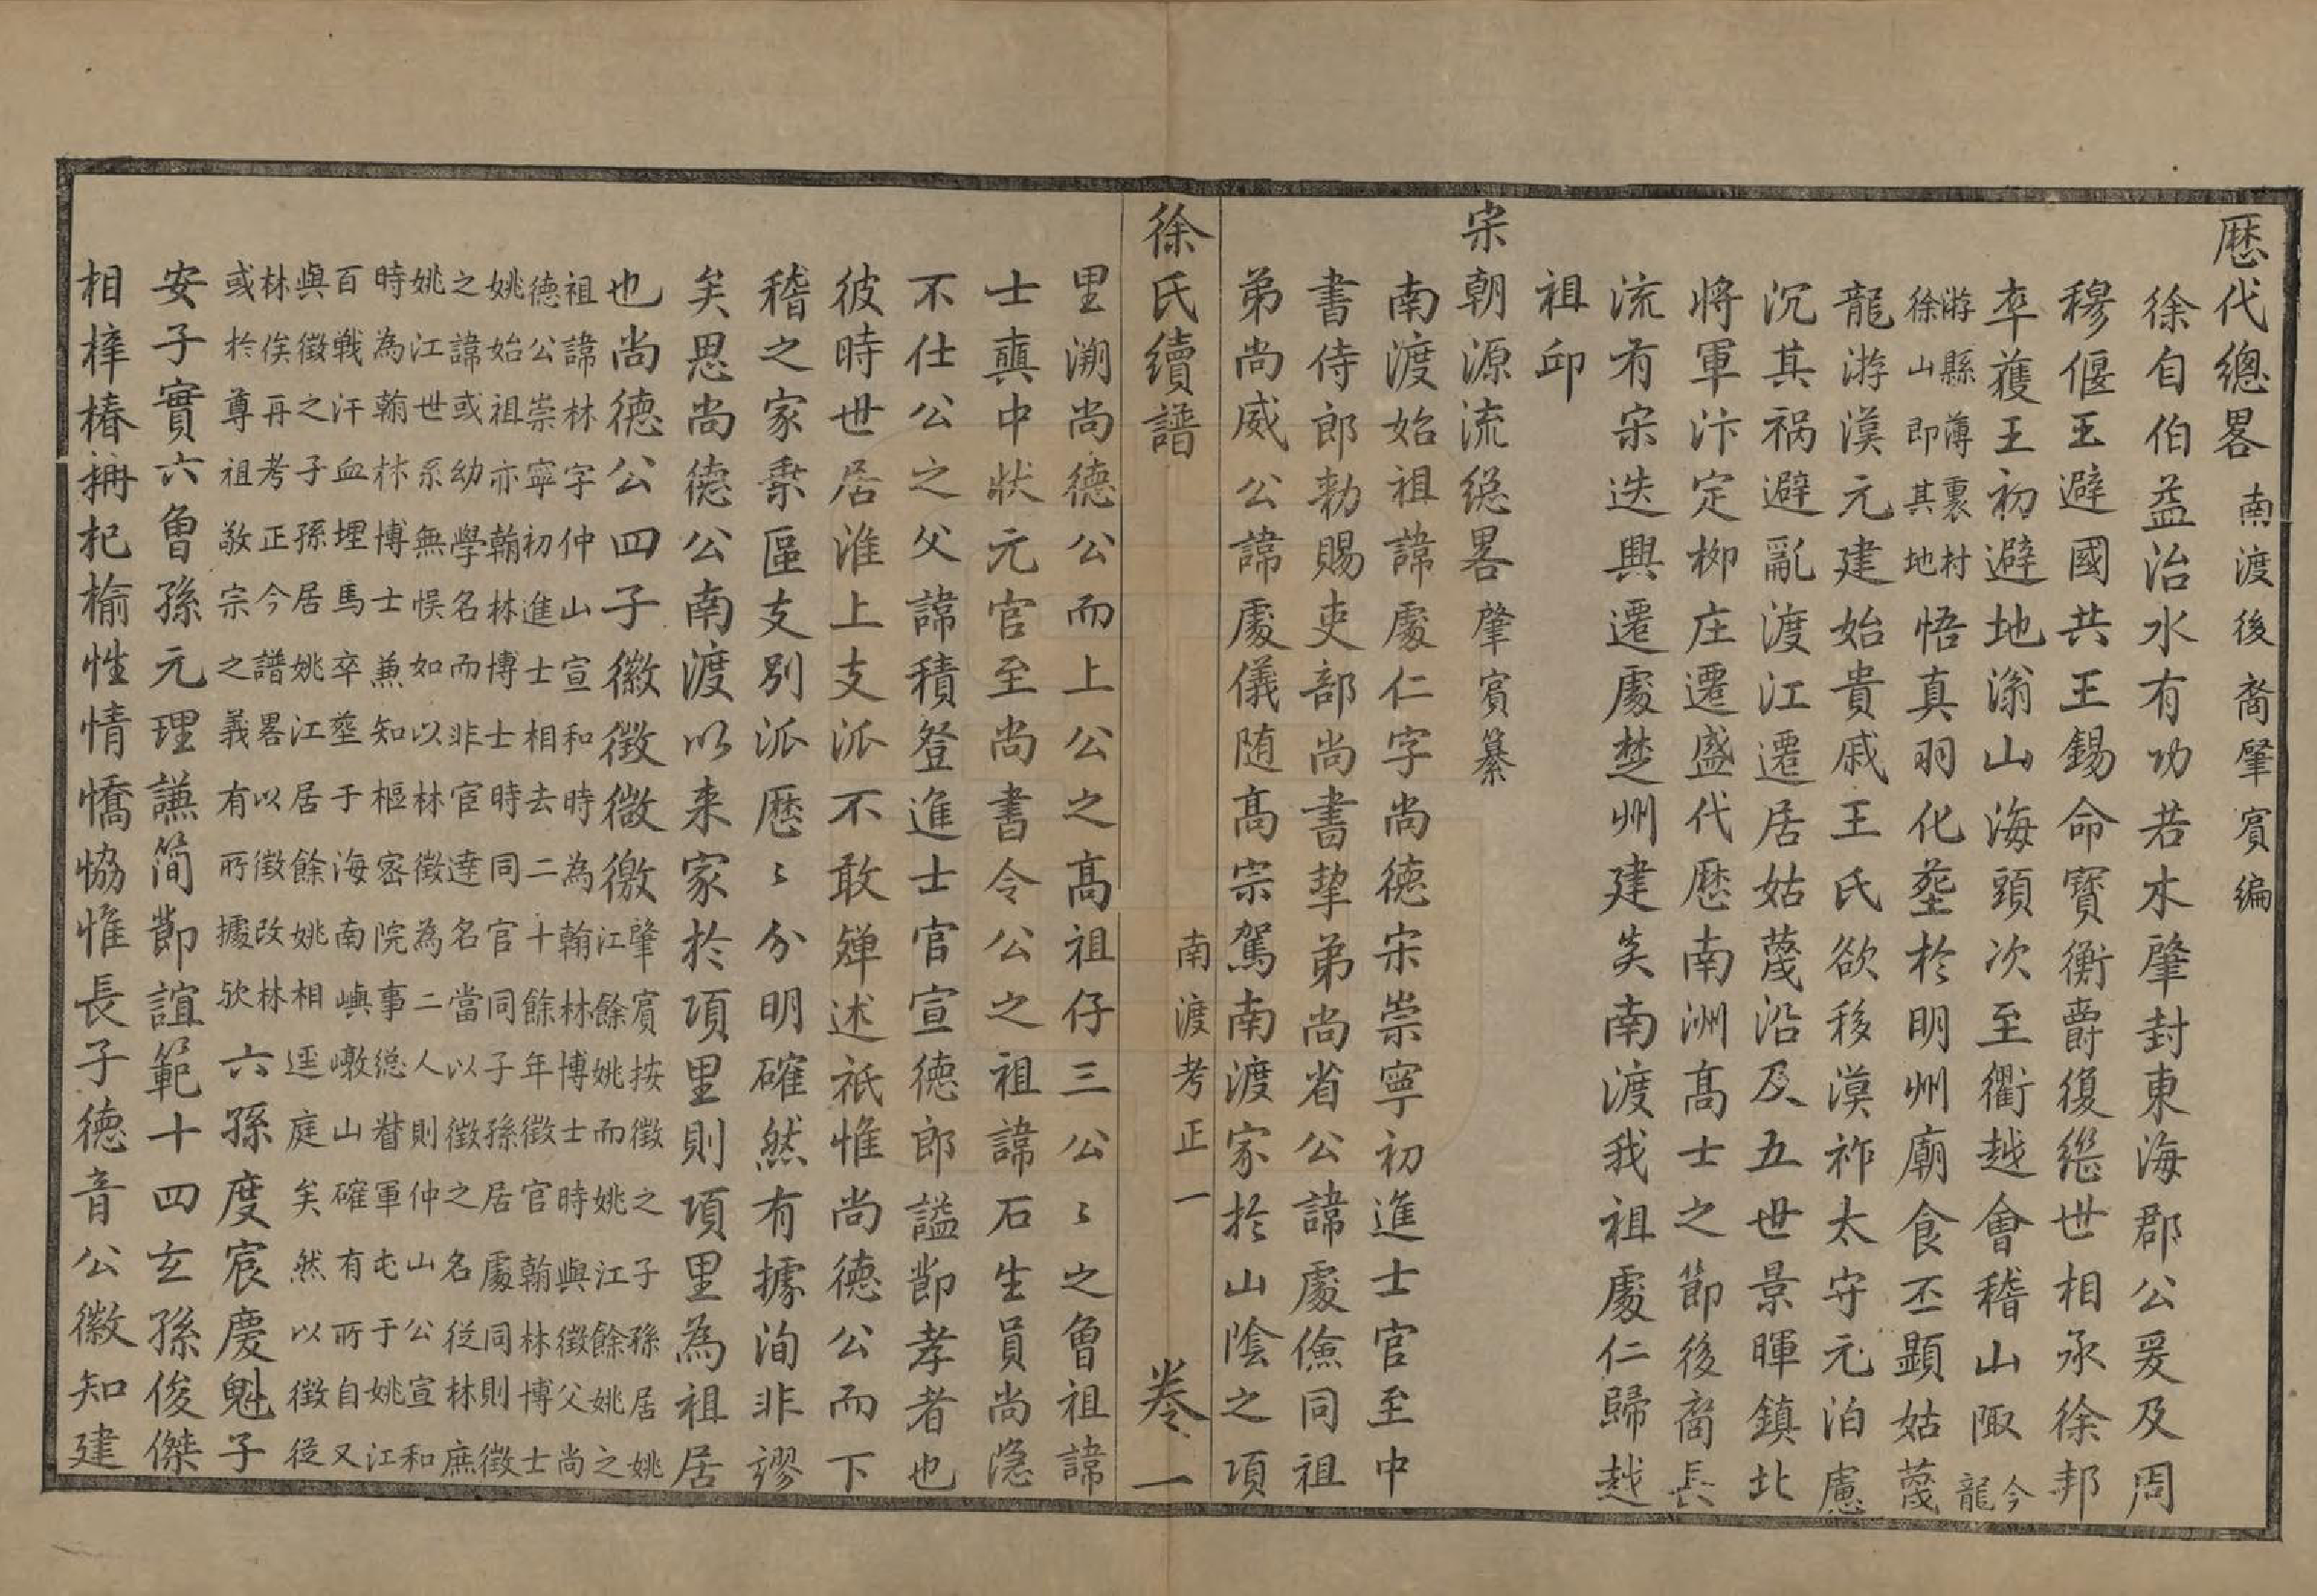 歷代總畧 南渡後裔肇賔編
徐自伯益治水有功若木肇封東海郡公爰及周
穆偃王避國共王錫命寳衡爵復継世相承徐邦
卒獲王初避地滃山海頭次至衢越會稽山陬今龍
游縣薄裏村
徐山即其地悟真羽化塟於明州廟食丕顯姑蔑
龍游漢元建始貴戚王氏欲移漢祚太守元泊慮
沉其祸避亂渡江遷居姑蔑沿及五世景暉鎮北
將軍汴定栁庄遷盛代歷南洲髙士之節後裔長
流有宋迭興遷處楚州建矣南渡我祖處仁歸越
祖邱
宋朝源流継畧肇賔纂
南渡始祖諱處仁字尚德宋崇寧初進士官至中
書侍郎勑賜吏部尚書挚弟尚省公諱處儉同祖
弟尚威公諱處儀随髙宗駕南渡家扵山陰之項
徐氏續譜 南渡考正一 卷一
里溯尚德公而上公之髙祖仔三公〻之曾祖諱
士真中狀元官至尚書令公之祖諱石生員尚隐
不仕公之父諱積登進士官宣德郎謚節孝者也
彼時世居淮上支派不敢殫述祇惟尚德公而下
稽之家乗區支别派歷〻分明確然有據洵非謬
矣思尚德公南渡以来家於項里則項里為祖居
也尚德公四子徽徴微徼肇賔按徴之子孫居姚
江餘姚而姚江餘姚之
祖諱林字仲山宣和時為翰林博士時與徴父尚
德公崇寧初進士相去二十餘年徴官翰林博士
姚始祖亦翰林博士時同官同子孫居處同則徴
之諱或幼學名而非宦達名當以徴之名從林庶
姚江世系無悮如以林徴為二人則仲山公宣和
時為翰林博士兼知樞密院事総督軍屯于姚江
百戦汗血埋馬卒塟于海南嶼㠉山確有所自又
與徴之子孫居姚江居餘姚相逕庭矣然以徴従
林俟再考正今譜畧以徴改林
或於尊祖敬宗之義有所據欤六孫度宸慶魁子
安子實六曽孫元理謙简節誼範十四玄孫俊傑
相梓椿枏杞榆性情憍恊惟長子德音公徽知建